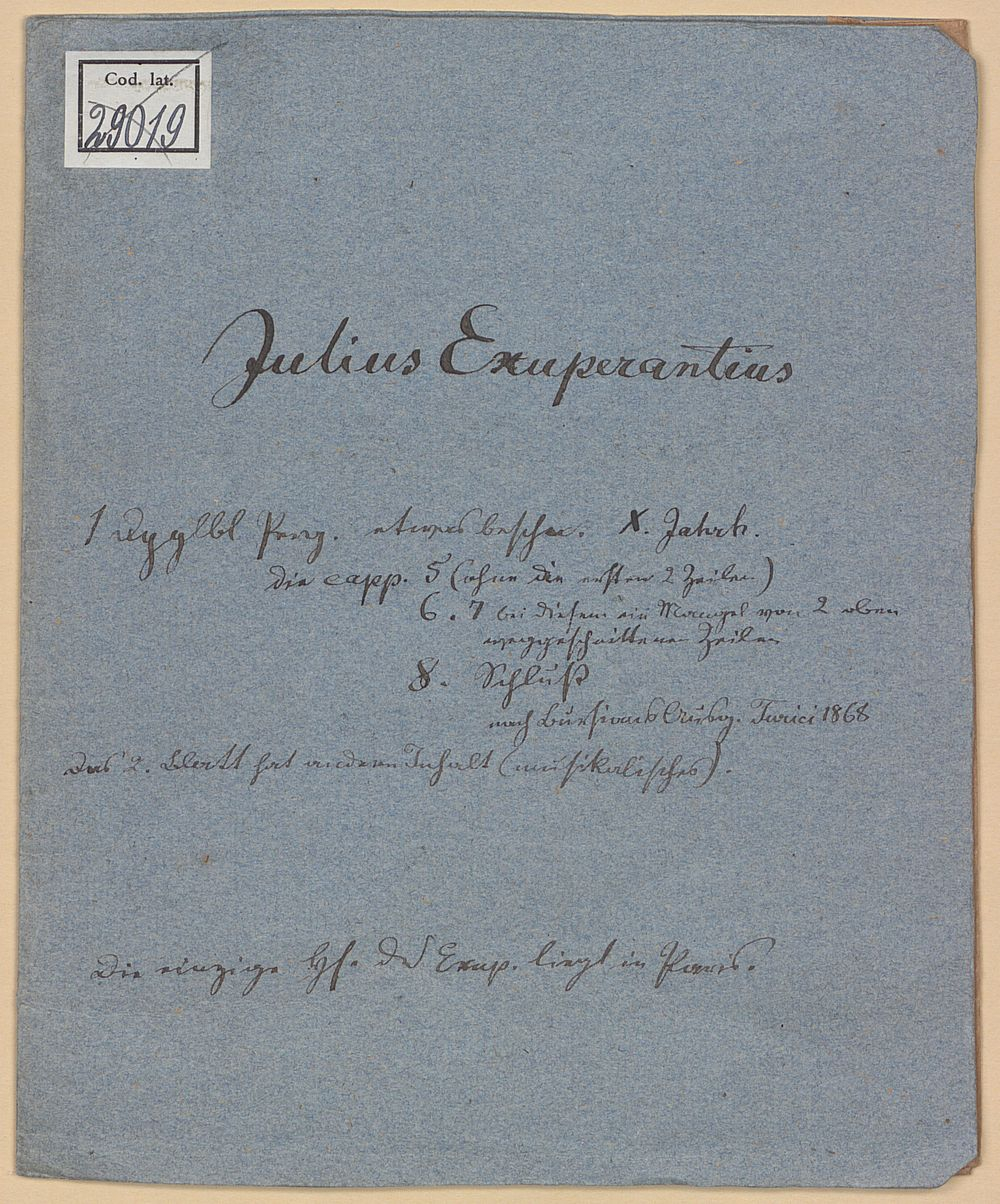 Cod. lat.
29019
Julius Exuperantius
1 Dpplbl Perg. etwas besch. X. Jahrh.
Die capp. 5 (ohne die ersten 2 Zeilen)
6. 7 bei diesem ein Mangel von 2 oben
weggeschnittenen Zeilen
8. Schluß
nach Bursians Ausg. Turici 1868
Das 2. Blatt hat andern Inhalt (musikalisches).
Die einzige Hs. des Exup. liegt in Paris.